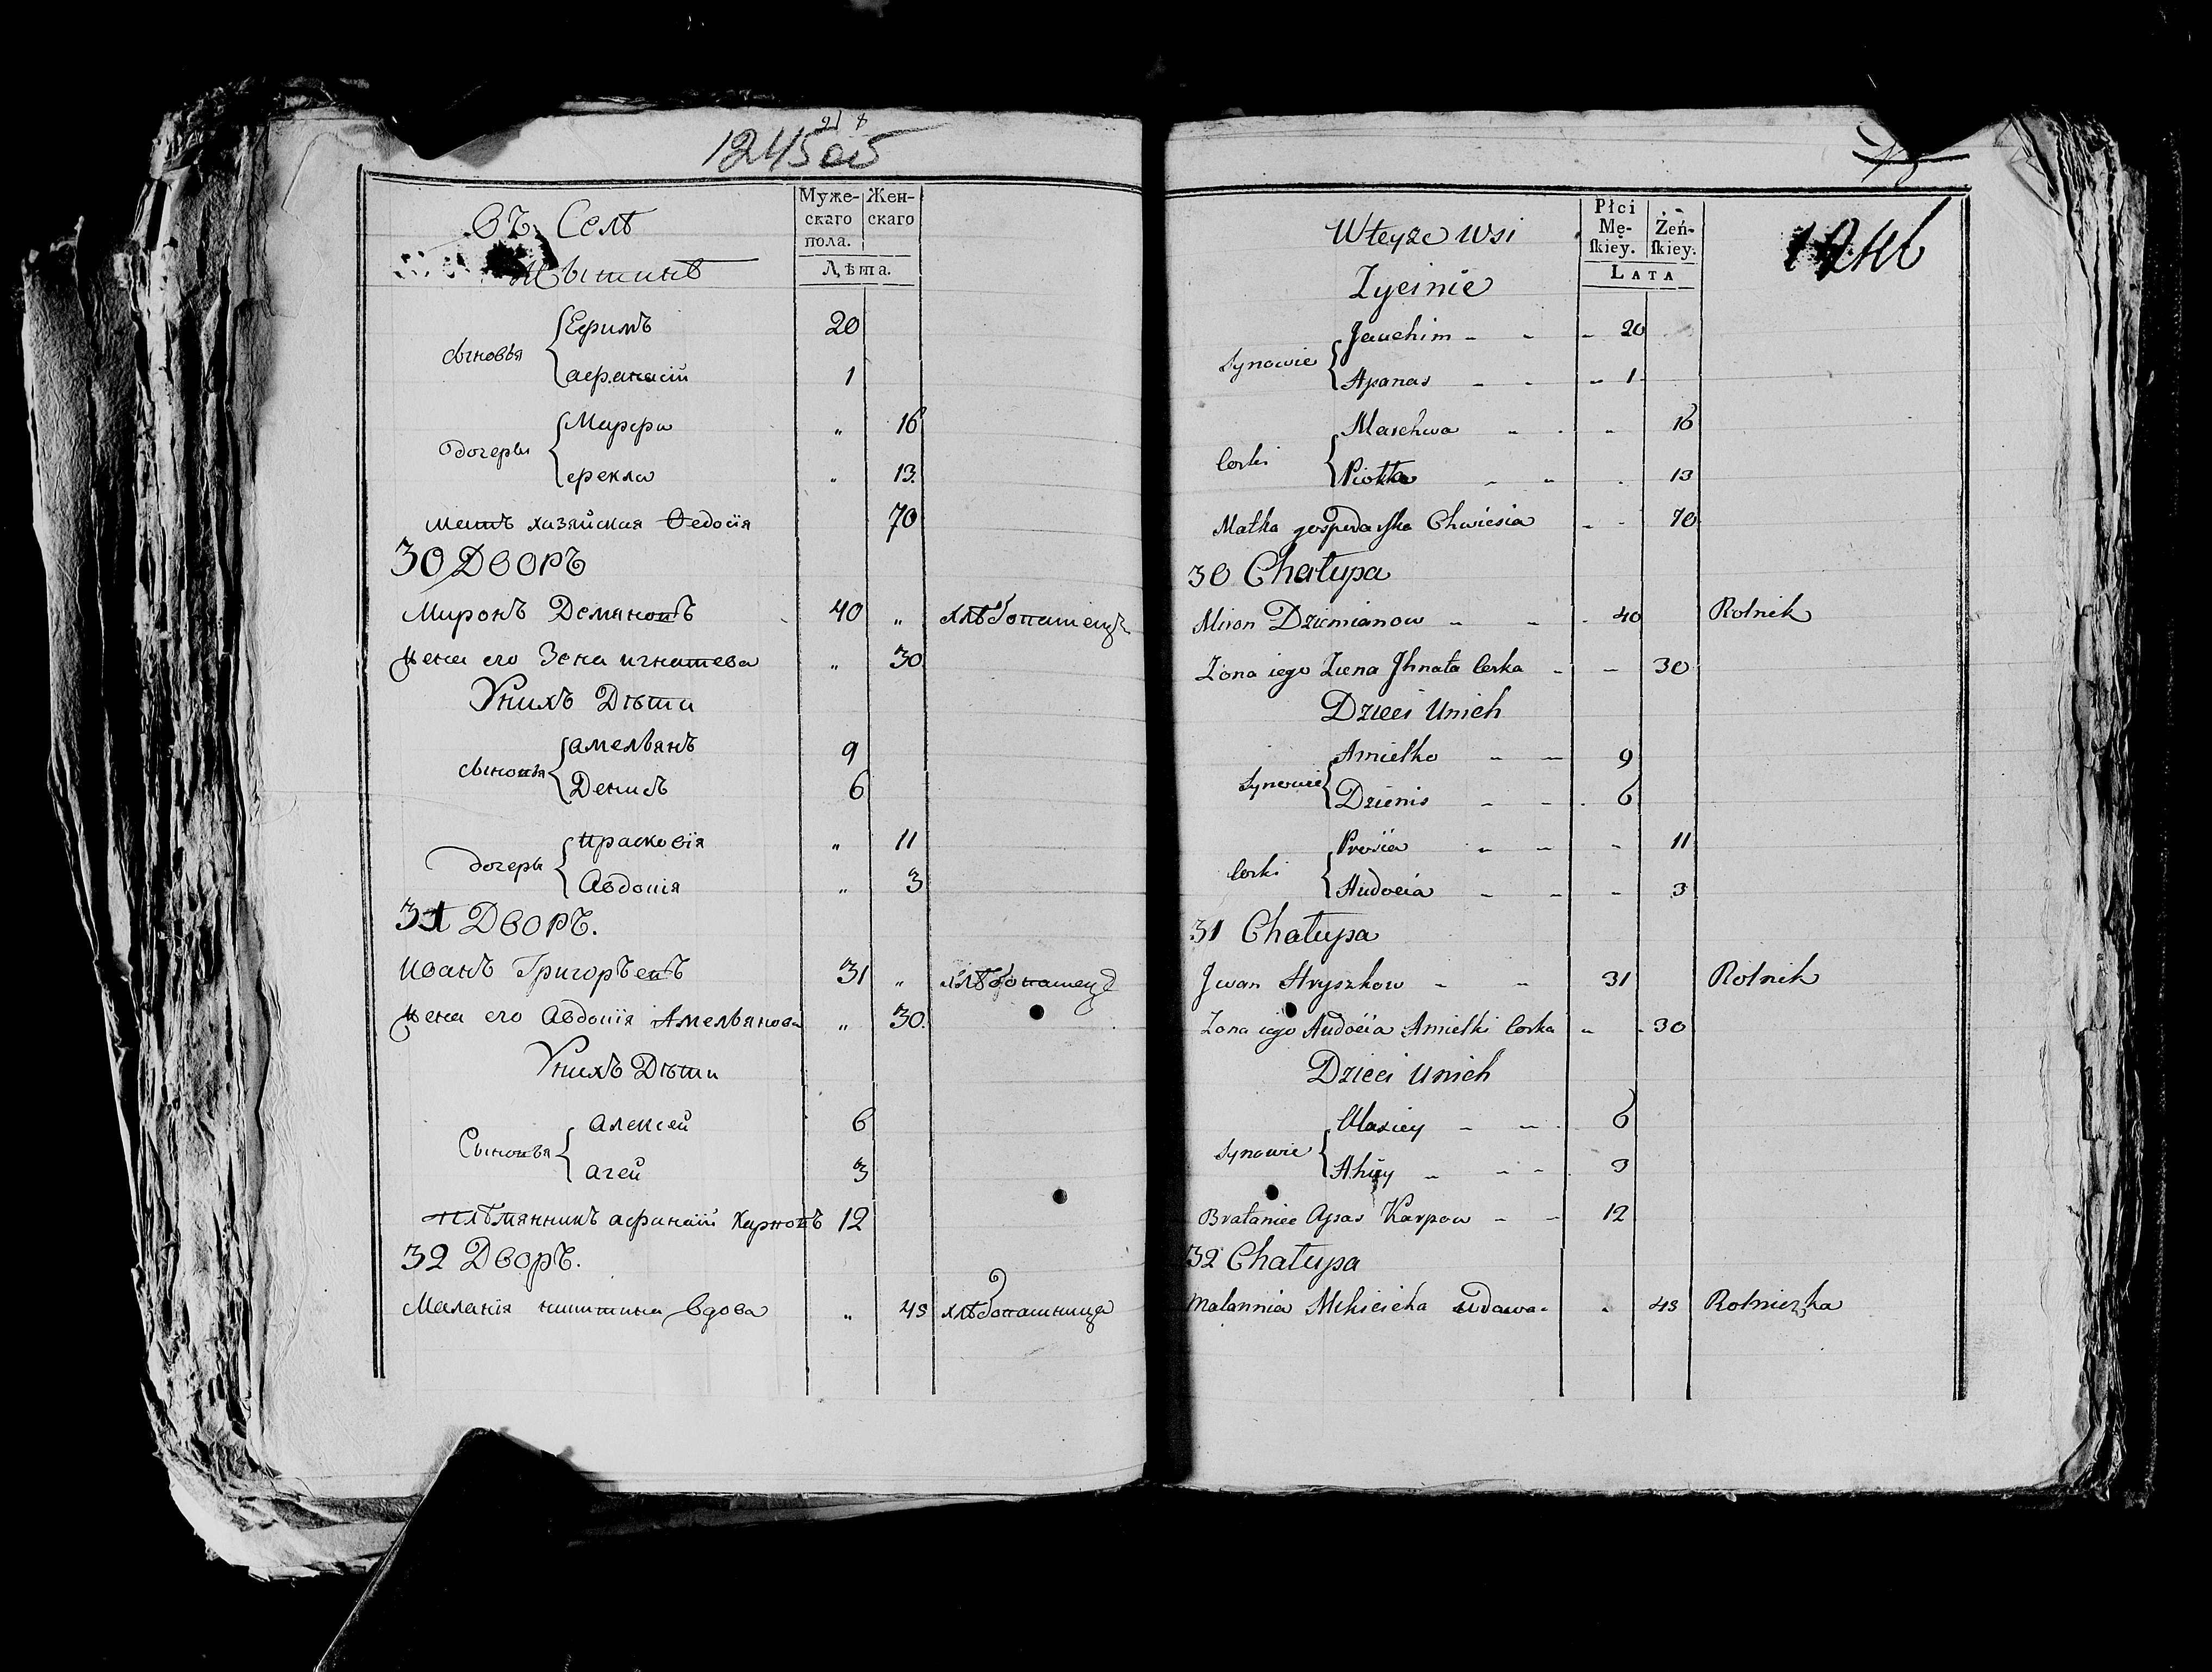 1245 об
Въ Селѣ
Жытинѣ
Муже-
скаго
пола.
Жен-
скаго
Лѣта.
сыновья
Ефимъ 20
афанасій 1
дочеры
Марфа „ 16
фекла „ 13.
мать хазяйская Ѳедосія 70
30 Дворъ
Миронъ Демяновъ 40 „ хлѣбопашецъ
жена его Зена игнатева „ 30
Унихъ Дѣти
сыновья
амельянъ 9
Денисъ 6
дочеры
прасковія „ 11
Авдопія „ 3
31 Дворъ.
Иванъ Григорьевъ 31 „ хлѣбопашецъ
жена его Авдопія Амельянова „ 30.
Унихъ Дѣти
Сыновья
алексей 6
агей 3
плѣмянникъ афанасій Карповъ 12
32 Дворъ.
Маланія никитина вдова „ 48 хлѣбопашница
Wteyże Wsi
Zycinie
Płci
Mę-
ſkiey.
Żeń-
ſkiey.
LATA
Synowie
Jauchim 20
Apanas 1
Corki
Marchwa „ 16
Piokła 13
Matka gospodarſka Chwiesia 70
30 Chałupa
Miron Dziemianow 40 Rolnik
Zona iego Ziena Jhnata Corka 30
Dzieci Unich
Synowie
Amielko 9
Dzienis 6
Corki
Prosia 11
Audocia 3
31 Chałupa
Jwan Hryszkow 31 Rolnik
Zona iego Audocia Amielki Corka 30
Dzieci Unich
Synowie
Alaxiey 6
Ahiey 3
Brataniec Apas Karpow 12
32 Chałupa
Malannia Mikicicha Wdowa 48 Rolniczka